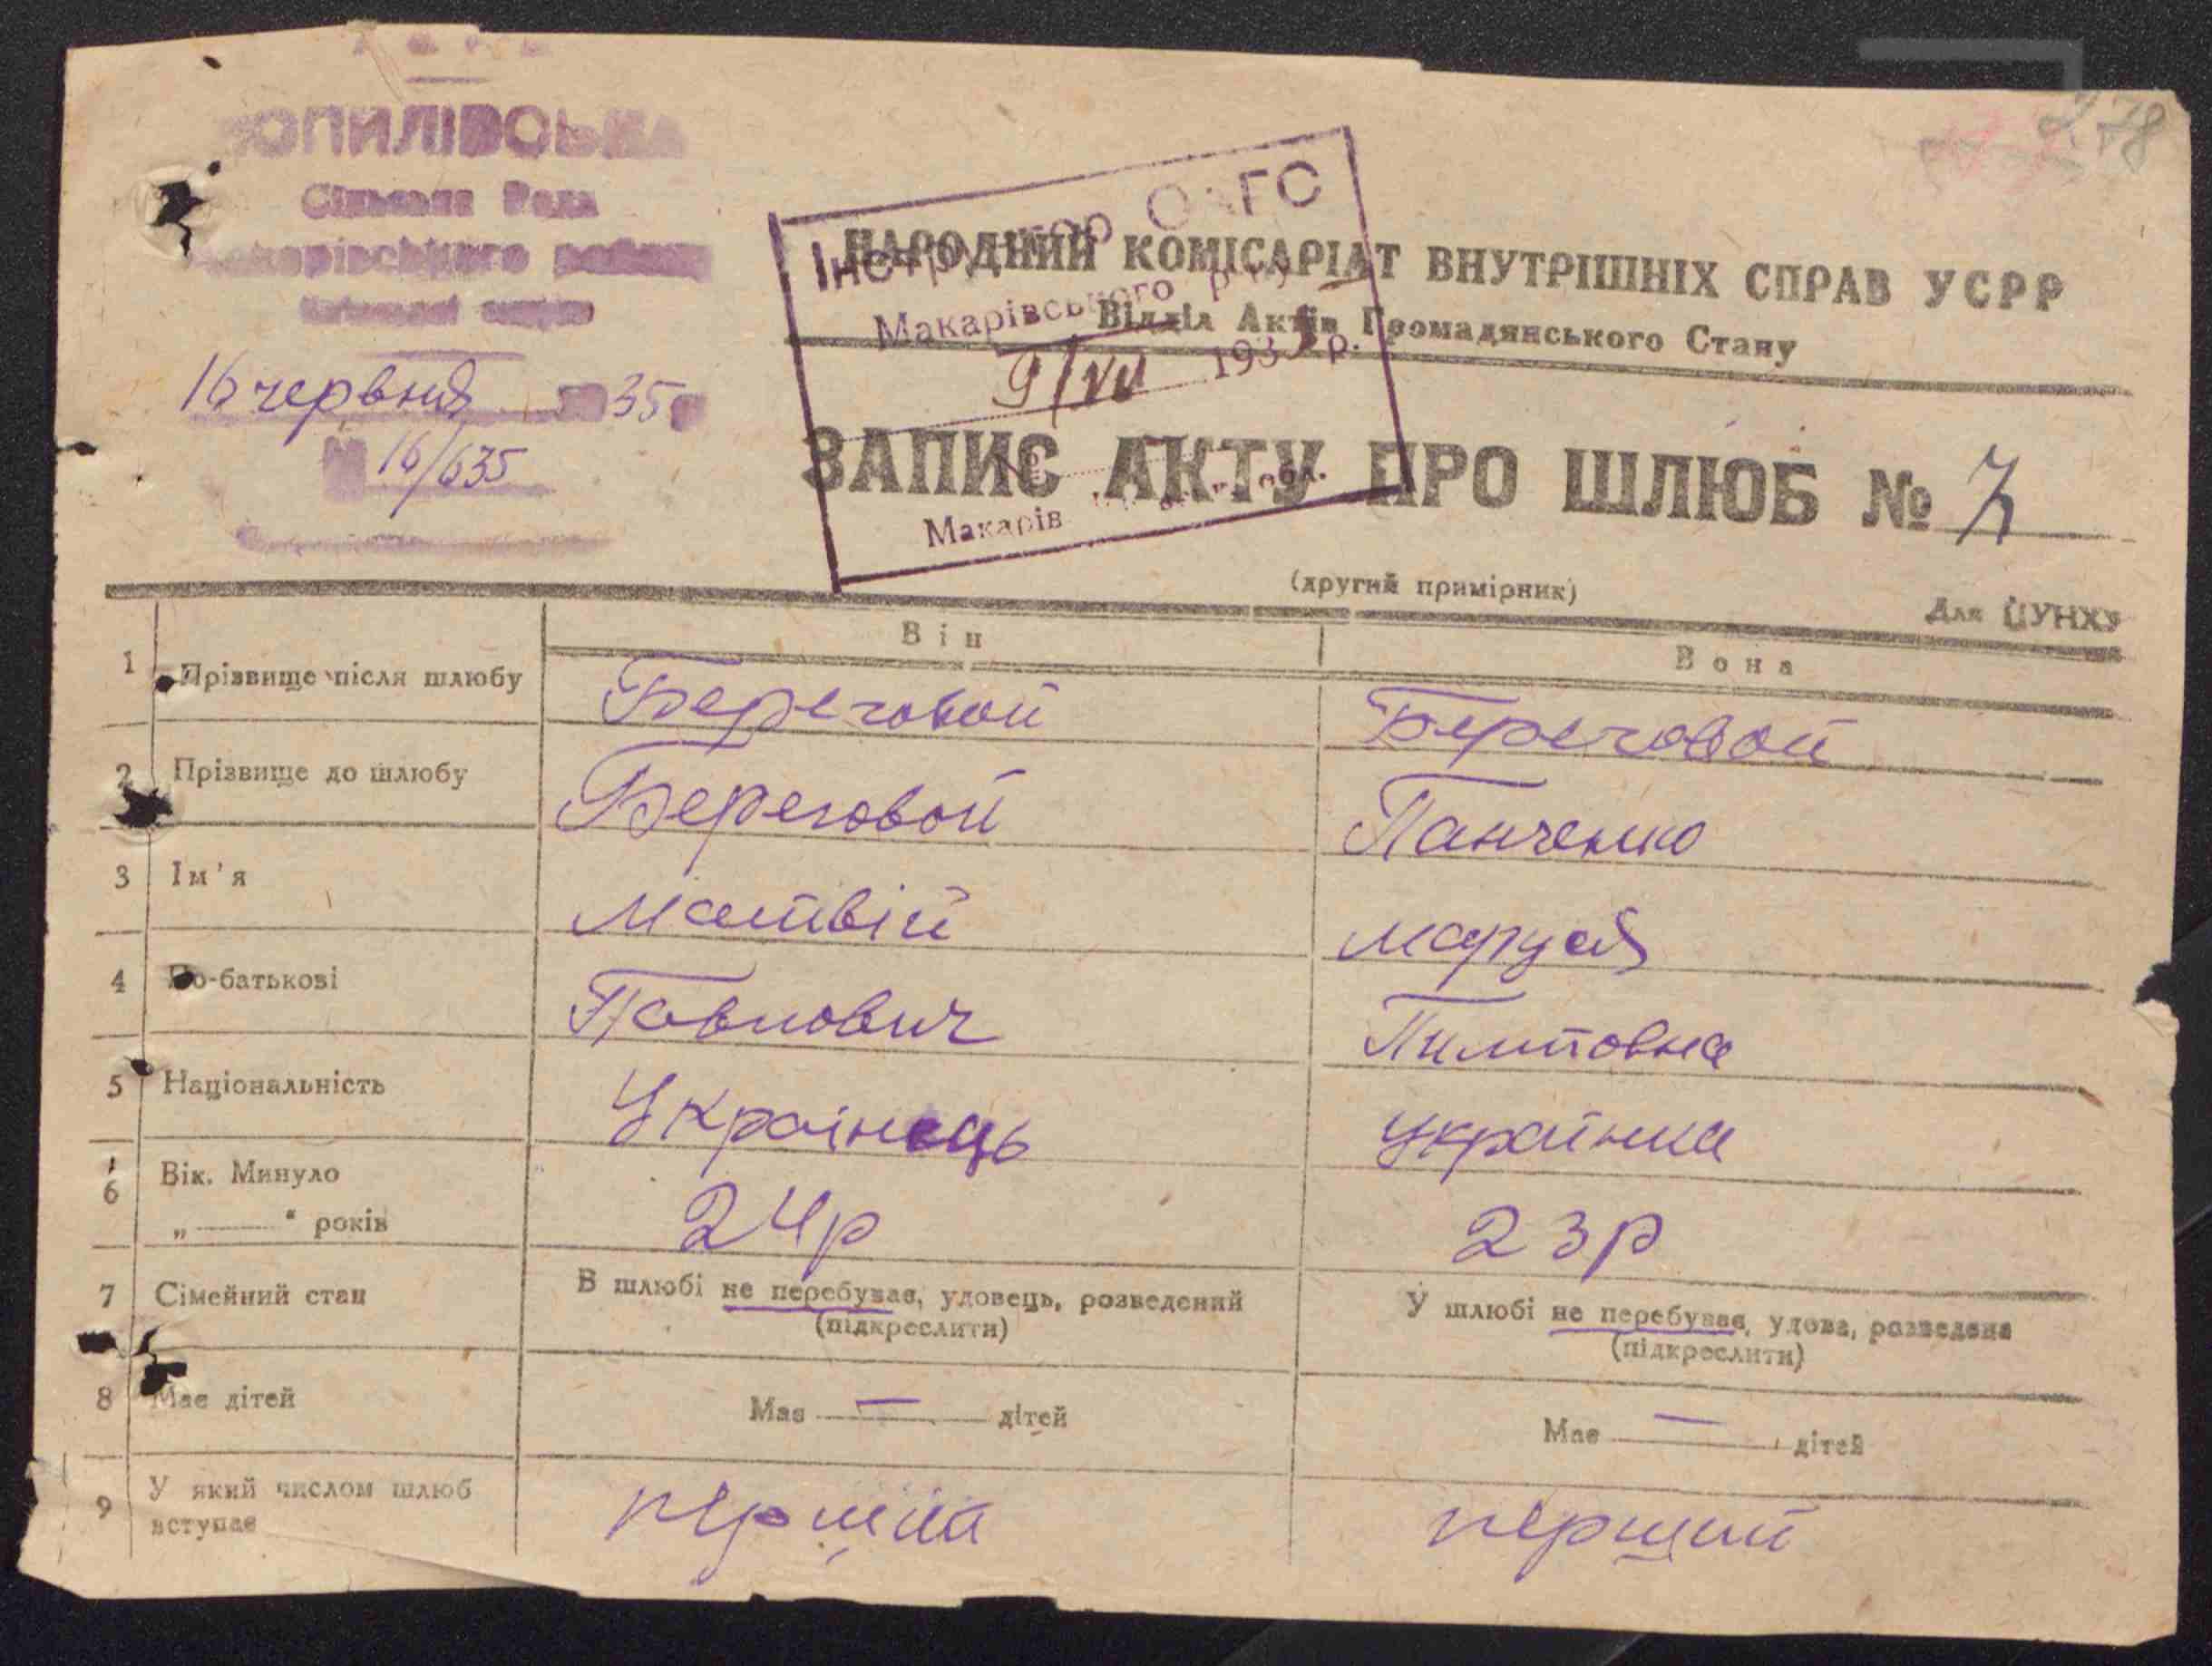 278
КОПИЛІВСЬКА
Сільська Рада
Макарівського району
16 червня 35
16/635
Інструктор ОАГС
Макарівського р-ну
9/VII 1935 р.
Макарів
НАРОДНИЙ КОМІСАРІАТ ВНУТРІШНІХ СПРАВ УСРР
Відділ Актів Громадянського Стану
ЗАПИС АКТУ ПРО ШЛЮБ № 7
(другий примірник)
Для ЦУНХУ
Він Вона
1 Прізвище після шлюбу Береговой Береговой
2 Прізвище до шлюбу Береговой Панченко
3 Ім'я Матвій Маруся
4 По-батькові Павлович Пилиповна
5 Національність Українець Українка
6 Вік. Минуло
„ — “ років 24р 23р
7 Сімейний стан В шлюбі не перебуває, удовець, розведений У шлюбі не перебуває, удова, розведена
(підкреслити) (підкреслити)
8 Має дітей Має — дітей Має — дітей
9 У який числом шлюб
вступає перший перший